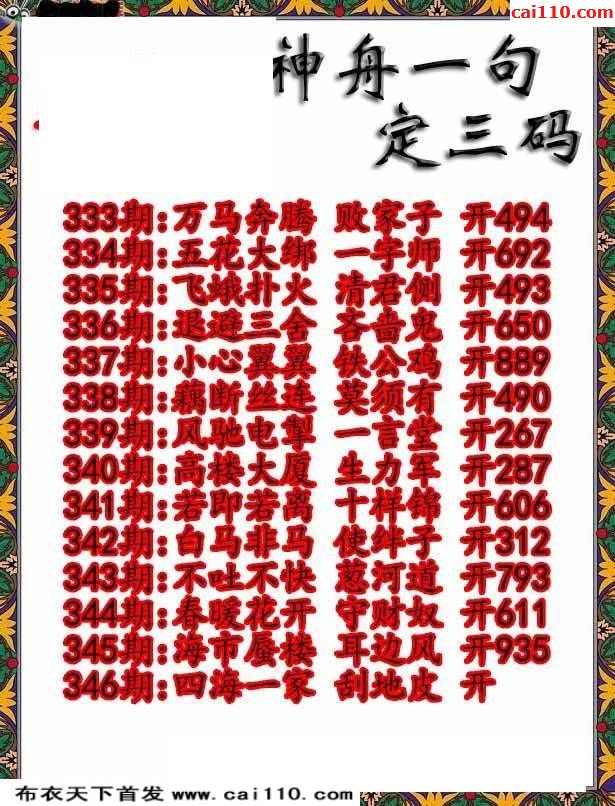 cai110.com
神舟一句
定三码
333期:万马奔腾 败家子 开494
334期:五花大绑 一字师 开692
335期:飞蛾扑火 清君侧 开493
336期:退避三舍 吝啬鬼 开650
337期:小心翼翼 铁公鸡 开889
338期:藕断丝连 莫须有 开490
339期:风驰电掣 一言堂 开267
340期:高楼大厦 生力军 开287
341期:若即若离 十样锦 开606
342期:白马非马 使绊子 开312
343期:不吐不快 葱河道 开793
344期:春暖花开 守财奴 开611
345期:海市蜃楼 耳边风 开935
346期:四海一家 刮地皮 开
布衣天下首发 www.cai110.com